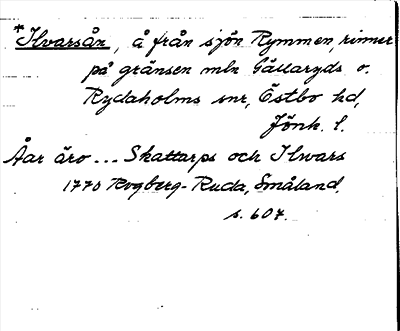 *Ilvarsån, å från sjön Rymmen, rinner
på gränsen mln Gällaryds o.
Rydaholms snr, Östbo hd,
Jönk. l.
Åar äro ... Skattarps och Ilwars
1770 Rogberg-Ruda, Småland,
s. 607.